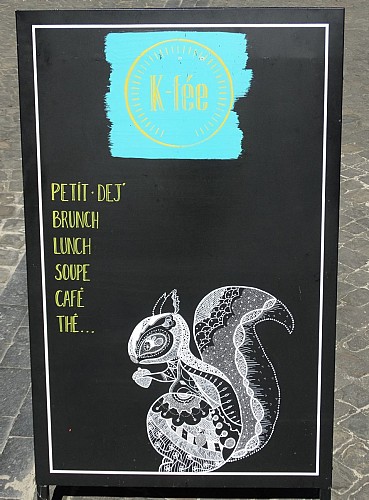 K-fée
PETIT·DEJ'
BRUNCH
LUNCH
SOUPE
CAFÉ
THÉ...